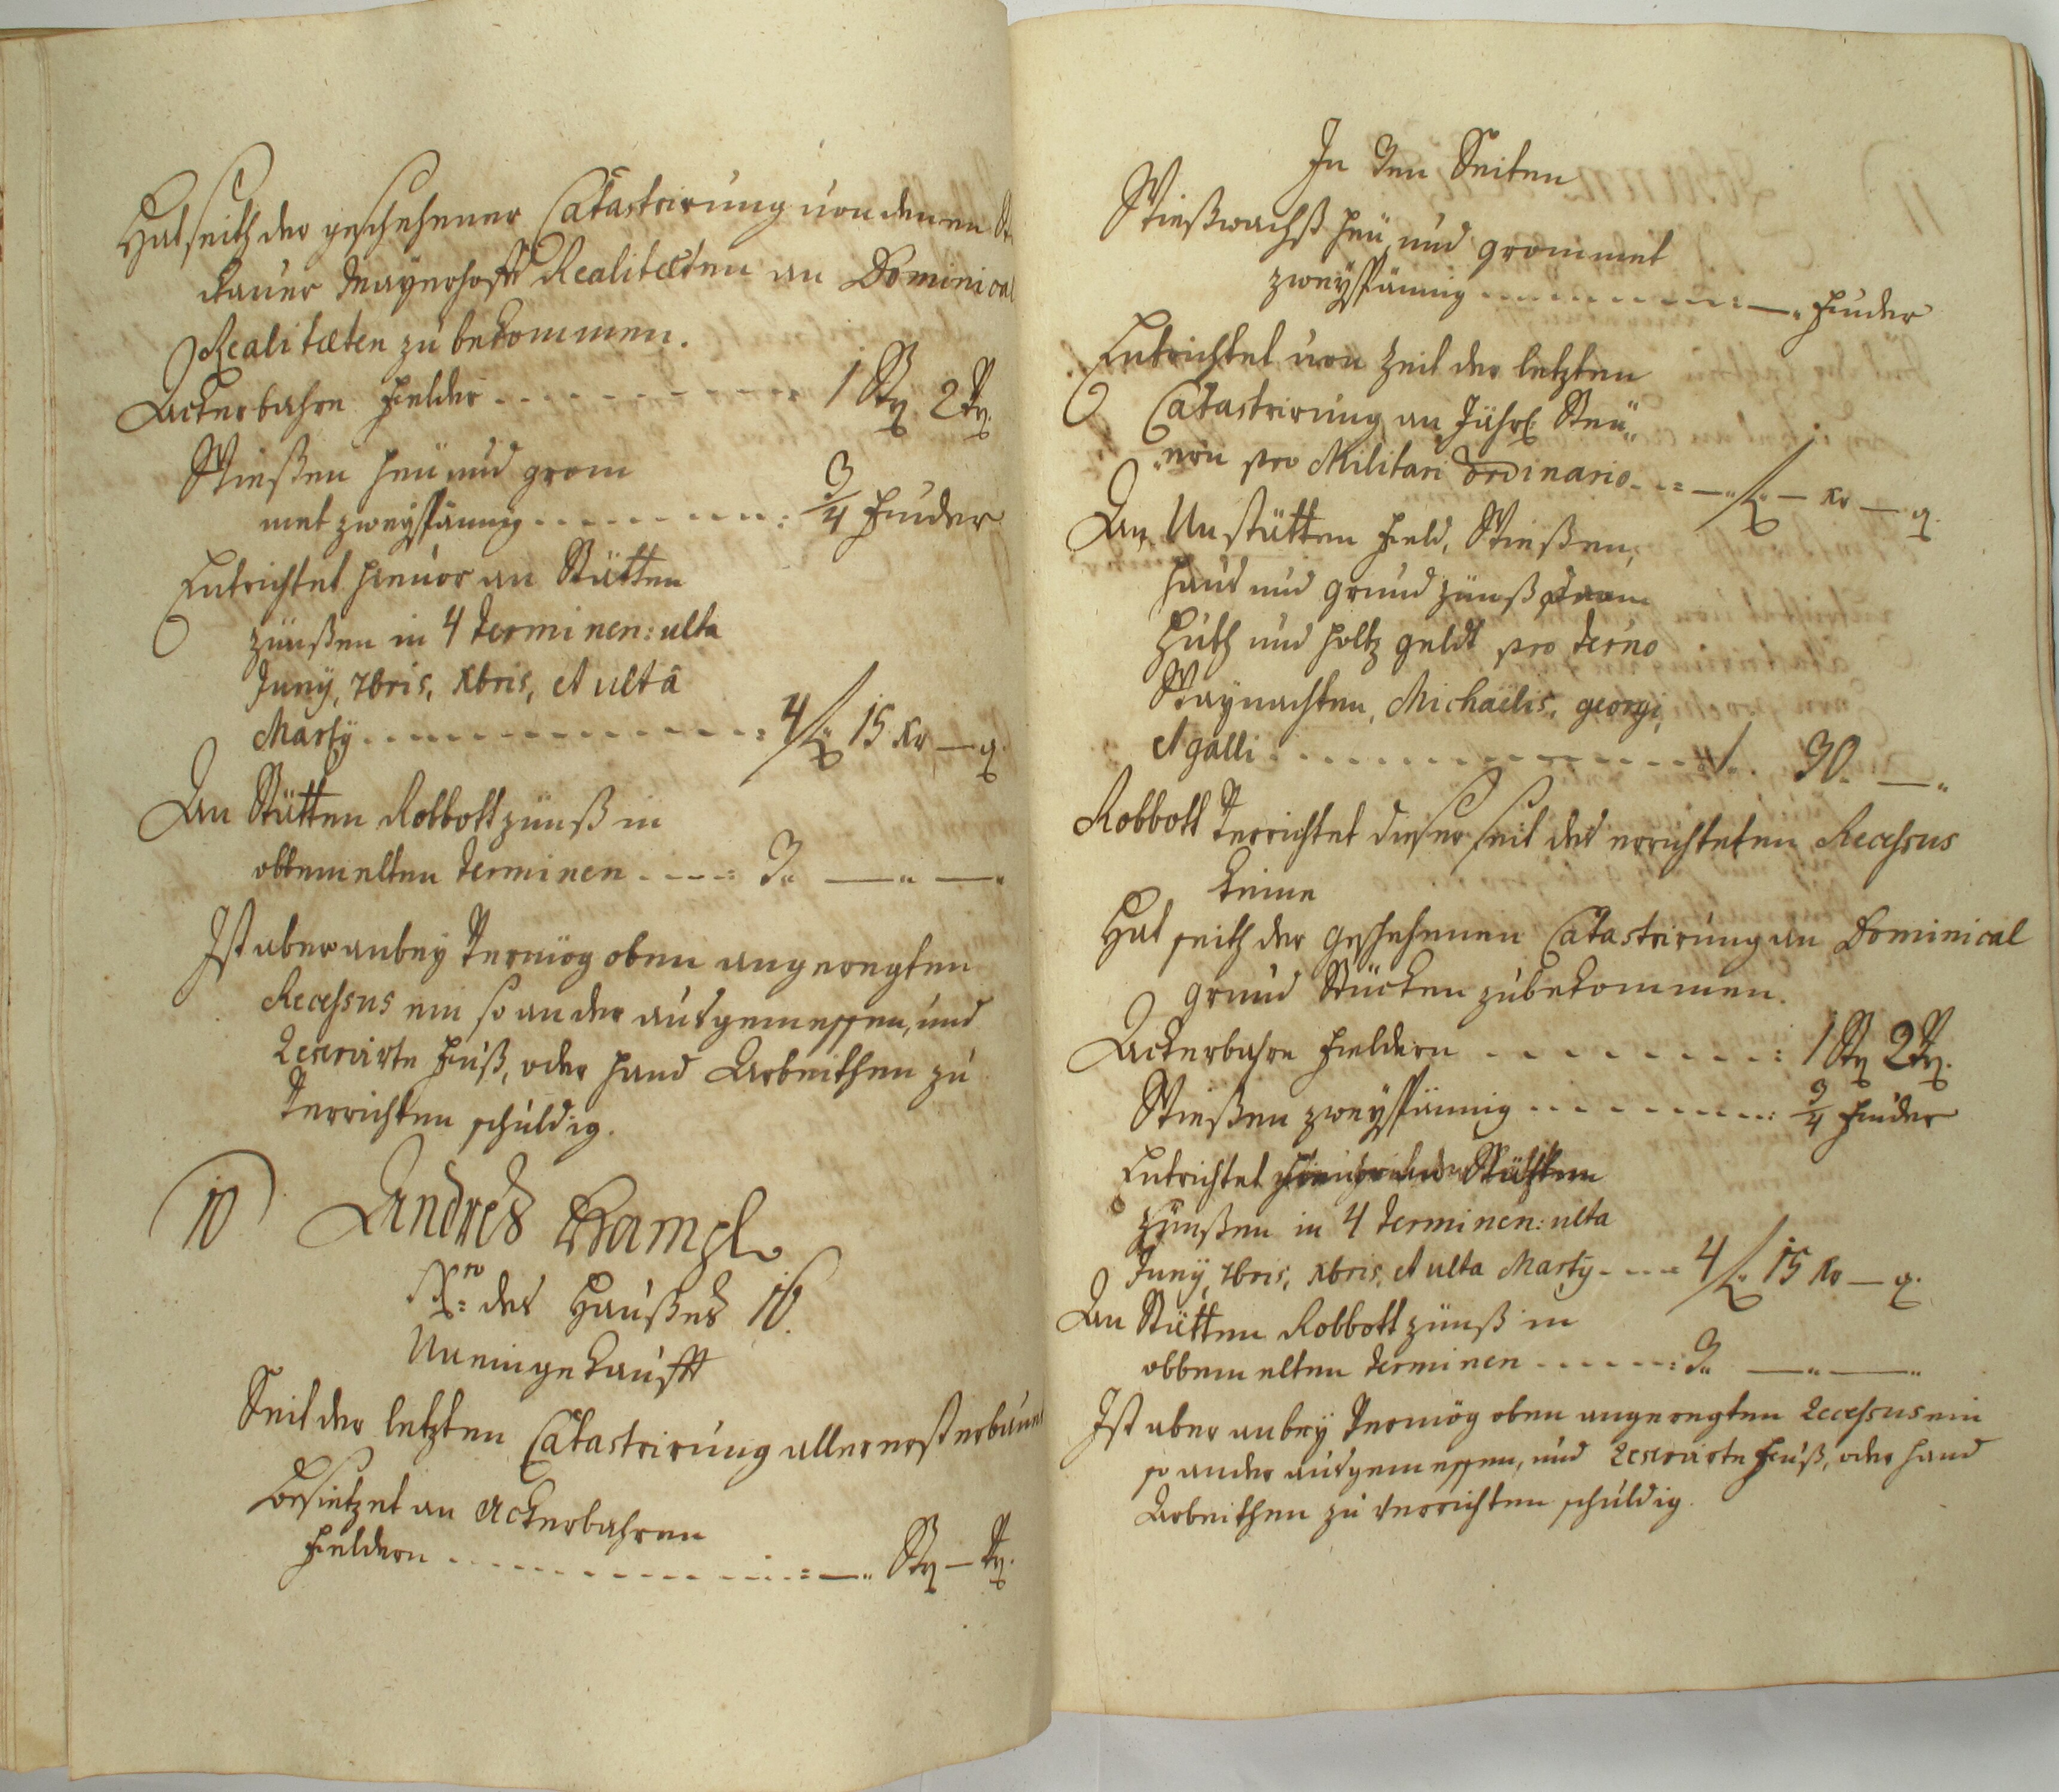 Hat seith der geschehener Catastrirung von denen
kauer Mayerhoff Realitæten an Dominical
Realitæten zu bekommen.
Ackerbahre Fielder - - - - - - - - - 1 Str 2 Vrt
Wießen heü und grom
met zweyspännig - - - - - - - - : 3/4 Fuder
Entrichtet hievor an Stütten
zünßen in 4 Terminen: ulta
Juny, 7bris, Xbris, et ultâ
Marty - - - - - - - - - - - - = 4 f 15 Kr — q.
An Stütten Robbott zünß in
obbemelten Terminen - - - - = 3" —" —"
Ist aber anbey Vermög oben angeregten
Recessus ein so ander ausgemessen, und
Reservirte Fuß, oder Hand Arbeithen zu
Verrichten schuldig.
10 Andres Hampl
Nro: des Haußes 10.
Uneingekaufft
Seit der letzten Catastrirung allererst erbauet
Besietzet an Ackerbahren
Fieldern - - - - - - - - - - - - = —" Str — Vrt.
In den Seiten
Wießwachß heü und grommet
zweyspännig - - - - - - - - - : —" Fuder
Entrichtet von Zeit der letzten
Catastrirung an Jährl. Steü„
„ern pro Militari ordinario - - = —" f" — Kr — q.
An Unstütten Field, Wießen,
Hauß und Grund zünß
Huth und Holtz geldt pro Termo
Waynachten, Michaëlis, Georgi,
et Galli - - - - - - - - - - - - = 1" 30. —"
Robbott Verrichtet dieser seit des errichteten Recessus
keine
Hat seith der geschehenen Catastrirung an Dominical
Grund Stücken zu bekommen.
Ackerbahre Fieldern - - - - - - - - : 1 Str 2 Vrt.
Wießen zweyspännig - - - - - - - - : 3/4 Fuder
Entrichtet Stütten
zünßen in 4 Terminen: ulta
Juny, 7bris, Xbris, et ulta Marty - - - = 4 f" 15 Kr — q.
An Stütten Robbott zünß in
obbemelten Terminen - - - - - - : 3" —" —"
Ist aber anbey Vermög oben angeregten Recessus ein
so ander ausgemessen, und Reservirte Fuß, oder Hand
Arbeithen zu verrichten schuldig.